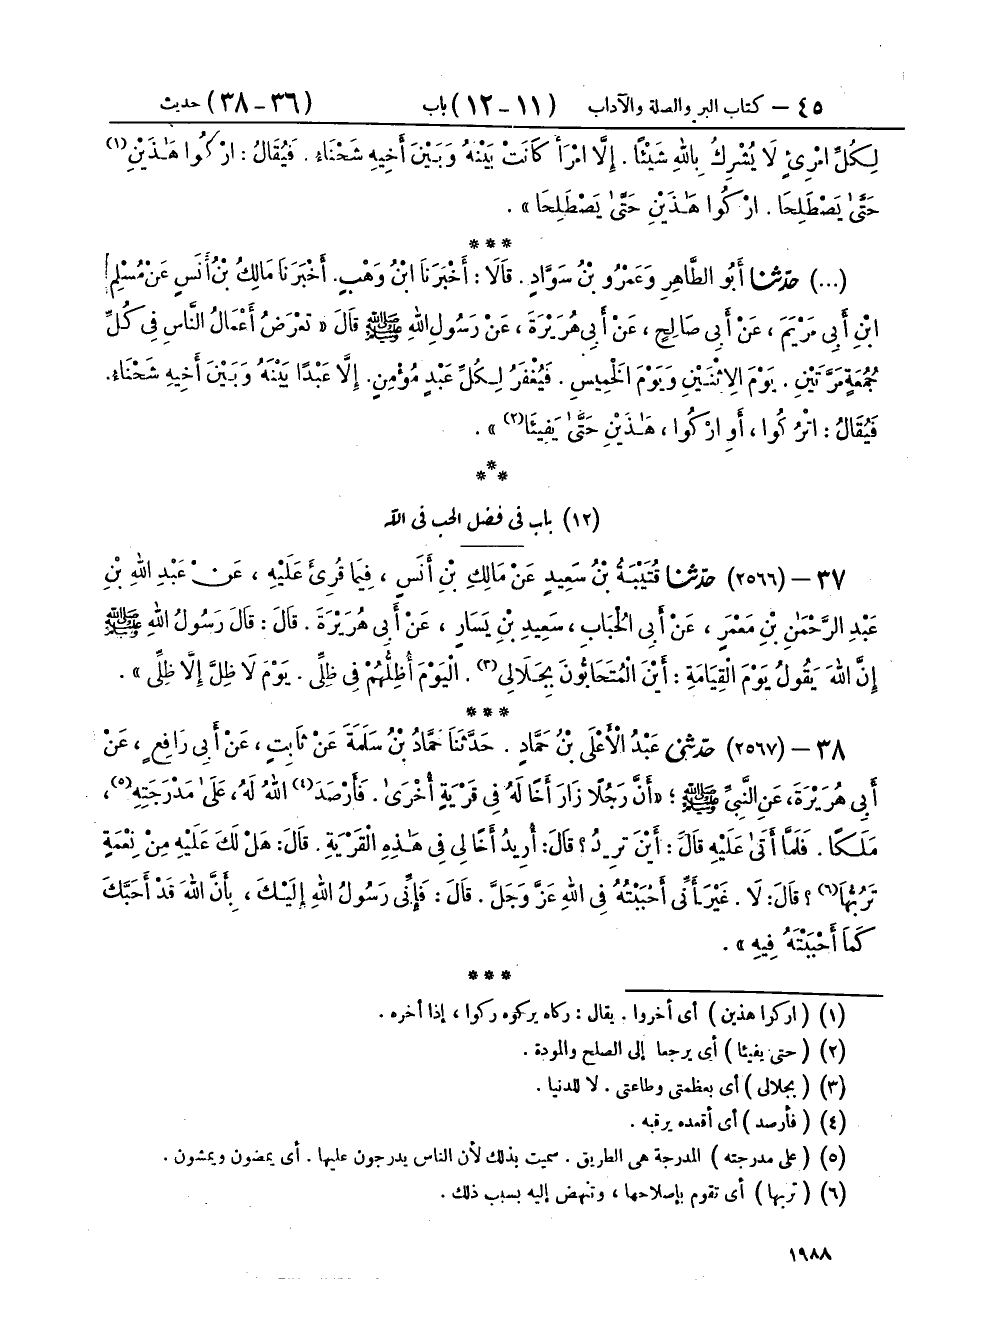 ٤٥ – كتاب البر والصلة والآداب (١١ – ١٢) باب (٣٦ – ٣٨) حديث
لِكُلِّ امْرِئٍ لَا يُشْرِكُ بِاللهِ شَيْئًا . إِلَّا امْرَأً كَانَتْ بَيْنَهُ وَبَيْنَ أَخِيهِ شَحْنَاءُ . فَيُقَالُ : ارْكُوا هَٰذَيْنِ(١)
حَتَّىٰ يَصْطَلِحَا . ارْكُوا هَٰذَيْنِ حَتَّىٰ يَصْطَلِحَا » .
***
(...) حَدَّثَنَا أَبُو الطَّاهِرِ وَعَمْرُو بْنُ سَوَّادٍ . قَالَا : أَخْبَرَنَا ابْنُ وَهْبٍ. أَخْبَرَنَا مَالِكُ بْنُ أَنَسٍ عَنْ مُسْلِمِ
ابْنِ أَبِي مَرْيَمَ ، عَنْ أَبِي صَالِحٍ ، عَنْ أَبِي هُرَيْرَةَ ، عَنْ رَسُولِ اللهِ ﷺ قَالَ « تُعْرَضُ أَعْمَالُ النَّاسِ فِي كُلِّ
جُمُعَةٍ مَرَّتَيْنِ . يَوْمَ الِاثْنَيْنِ وَيَوْمَ الْخَمِيسِ . فَيُغْفَرُ لِكُلِّ عَبْدٍ مُؤْمِنٍ. إِلَّا عَبْدًا بَيْنَهُ وَبَيْنَ أَخِيهِ شَحْنَاءُ.
فَيُقَالُ : اتْرُكُوا ، أَوِ ارْكُوا ، هَٰذَيْنِ حَتَّىٰ يَفِيئَا(٢) » .
***
(١٢) باب فى فضل الحب فى الله
٣٧ – (٢٥٦٦) حَدَّثَنَا قُتَيْبَةُ بْنُ سَعِيدٍ عَنْ مَالِكِ بْنِ أَنَسٍ ، فِيمَا قُرِئَ عَلَيْهِ ، عَنْ عَبْدِ اللهِ بْنِ
عَبْدِ الرَّحْمَٰنِ بْنِ مَعْمَرٍ ، عَنْ أَبِي الْحُبَابِ ، سَعِيدِ بْنِ يَسَارٍ ، عَنْ أَبِي هُرَيْرَةَ . قَالَ : قَالَ رَسُولُ اللهِ ﷺ
إِنَّ اللهَ يَقُولُ يَوْمَ الْقِيَامَةِ : أَيْنَ الْمُتَحَابُّونَ بِجَلَالِي(٣) . الْيَوْمَ أُظِلُّهُمْ فِي ظِلِّي . يَوْمَ لَا ظِلَّ إِلَّا ظِلِّي » .
***
٣٨ – (٢٥٦٧) حَدَّثَنِي عَبْدُ الْأَعْلَى بْنُ حَمَّادٍ . حَدَّثَنَا حَمَّادُ بْنُ سَلَمَةَ عَنْ ثَابِتٍ ، عَنْ أَبِي رَافِعٍ ، عَنْ
أَبِي هُرَيْرَةَ، عَنِ النَّبِيِّ ﷺ ؛ «أَنَّ رَجُلًا زَارَ أَخًا لَهُ فِي قَرْيَةٍ أُخْرَىٰ . فَأَرْصَدَ(٤) اللهُ لَهُ، عَلَىٰ مَدْرَجَتِهِ(٥)،
مَلَكًا . فَلَمَّا أَتَىٰ عَلَيْهِ قَالَ : أَيْنَ تُرِيدُ ؟ قَالَ: أُرِيدُ أَخًا لِي فِي هَٰذِهِ الْقَرْيَةِ . قَالَ: هَلْ لَكَ عَلَيْهِ مِنْ نِعْمَةٍ
تَرُبُّهَا(٦) ؟ قَالَ: لَا . غَيْرَ أَنِّي أَحْبَبْتُهُ فِي اللهِ عَزَّ وَجَلَّ . قَالَ : فَإِنِّي رَسُولُ اللهِ إِلَيْكَ ، بِأَنَّ اللهَ قَدْ أَحَبَّكَ
كَمَا أَحْبَبْتَهُ فِيهِ » .
***
(١) ( اركوا هذين ) أى أخروا . يقال : ركاه يركوه ركوا ، إذا أخره .
(٢) ( حتى يفيئا ) أى يرجعا إلى الصلح والمودة .
(٣) ( بجلالى ) أى بعظمتى وطاعتى . لا للدنيا .
(٤) ( فأرصد ) أى أقعده يرقبه .
(٥) ( على مدرجته ) المدرجة هى الطريق . سميت بذلك لأن الناس يدرجون عليها . أى يمضون ويمشون .
(٦) ( تربها ) أى تقوم بإصلاحها ، وتنهض إليه بسبب ذلك .
١٩٨٨